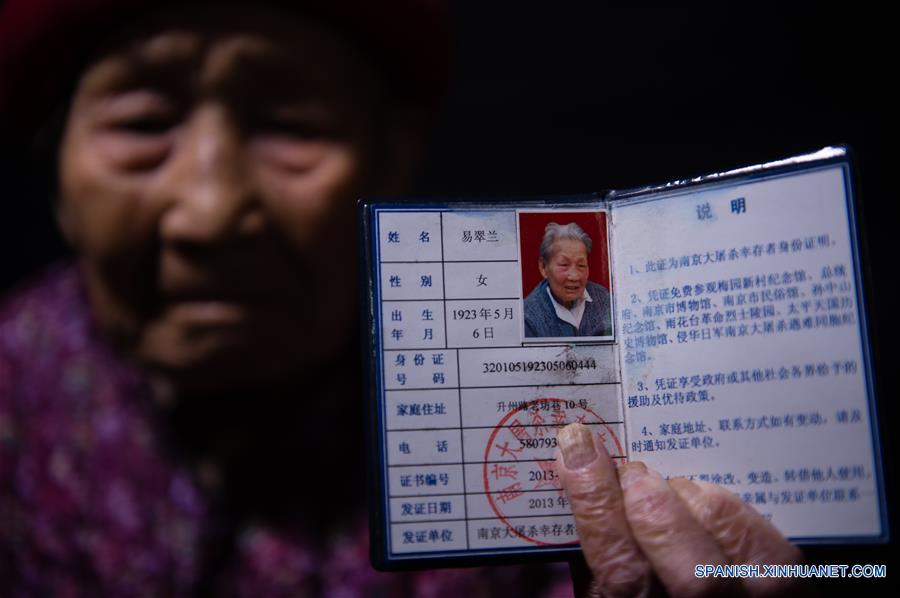 姓 名 易翠兰
性 别 女
出 生
年 月
1923年5月
6日
身份证
号 码
320105192305060444
家庭住址 升州路老坊巷10号
电 话 580793
证书编号 2013-
发证日期 2013年
发证单位 南京大屠杀幸存者
说 明
1、此证为南京大屠杀幸存者身份证明。
2、凭证免费参观梅园新村纪念馆、总统
府、南京市博物馆、南京市民俗馆、孙中山
纪念馆、雨花台革命烈士陵园、太平天国历
史博物馆、侵华日军南京大屠杀遇难同胞纪
念馆。
3、凭证享受政府或其他社会各界给予的
援助及优待政策。
4、家庭地址、联系方式如有变动，请及
时通知发证单位。
涂改、变造、转借他人使用，
亲属与发证单位联系
SPANISH.XINHUANET.COM